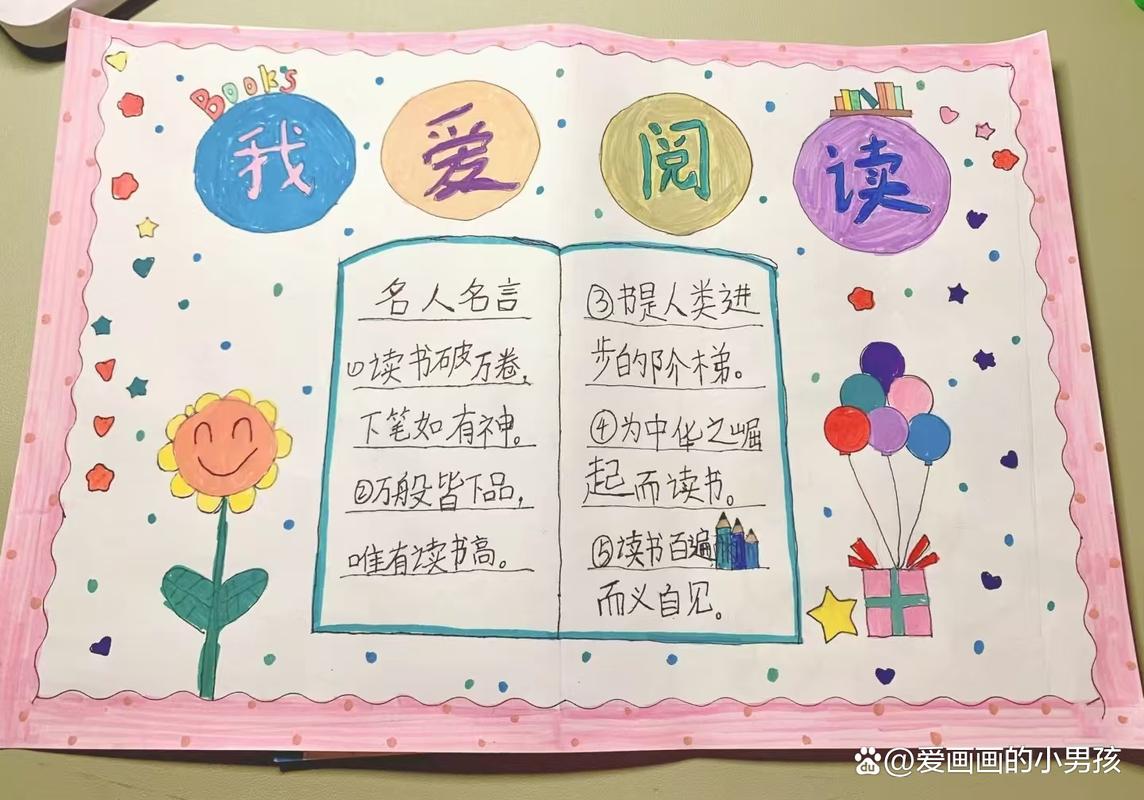 Books
我爱阅读
名人名言
①读书破万卷，
下笔如有神。
②万般皆下品，
唯有读书高。
③书是人类进
步的阶梯。
④为中华之崛
起而读书。
⑤读书百遍
而义自见。
du @爱画画的小男孩